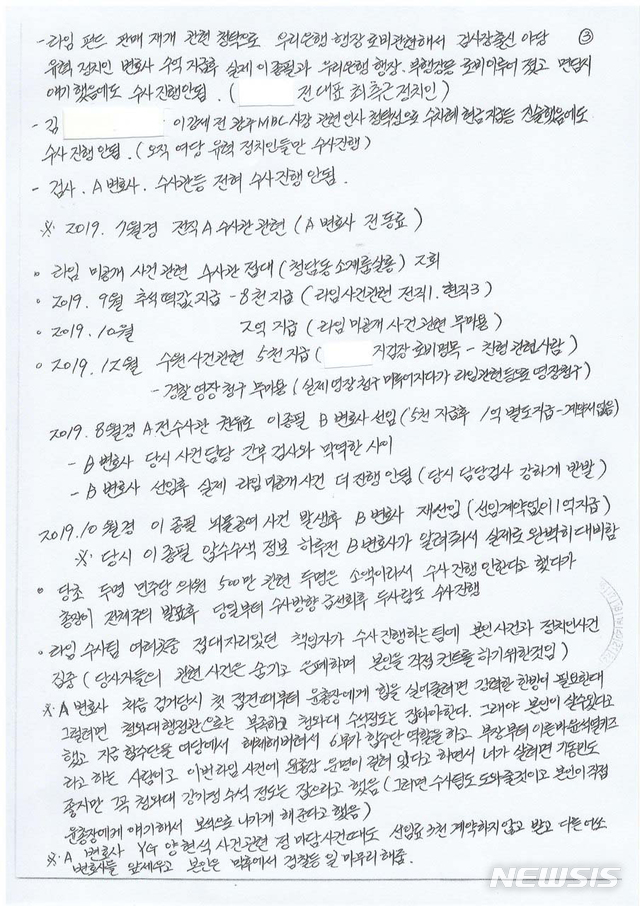 ③
- 라임 펀드 판매 재개 관련 청탁으로 우리은행 행장 로비관련해서 검사장출신 야당
유력정치인 변호사 수억 지급후 실제 이종필과 우리은행 행장. 부행장등 로비이루어 졌고 면담시
얘기했음에도 수사진행안됨. ( 전 대표 최측근 정치인 )
- 김 이강제 전 광주MBC사장 관련인사 청탁성으로 수차례 현금지급등 진술했음에도
수사 진행 안됨. (오직 여당 유력 정치인들만 수사진행)
- 검사. A 변호사. 수사관등 전혀 수사진행 안됨.
※. 2019. 7월경 전직 A 수사관 관련 ( A 변호사 전 동료 )
o 라임 미공개 사건 관련 수사관 접대 (청담동 소재룸살롱) 2회
o 2019. 9월 추석떡값 지급 - 8천 지급 ( 라임사건관련 전직1. 현직3 )
o 2019. 10월 2억 지급 ( 라임 미공개 사건 관련 무마용 )
o 2019. 12월 수원사건관련 5천 지급 ( 지검장 로비명목 - 친형 관련사람 )
- 경찰 영장 청구 무마용 (실제 영장청구 미루어지다가 라임관련등으로 영장청구)
2019. 8월경 A 전수사관 이종필 B 변호사 선임 (5천 지급후 1억 별도지급 - 계약서 없음)
- B 변호사 당시 사건 담당 간부 검사와 막역한 사이
- B 변호사 선임후 실제 라임 미공개사건 더 진행 안됨 ( 당시 담당검사 강하게 반발 )
2019. 10월경 이종필 뇌물공여 사건 발생후 B 변호사 재선임 (선임계약없이 1억지급)
※ 당시 이종필 압수수색 정보 하루전 B변호사가 알려줘서 실제로 완벽히 대비함
o 당초 두명 민주당 의원 500만 관련 두명은 소액이라서 수사진행 안한다고 했다가
총장이 전체주의 발표후 당일부터 수사방향 급선회후 두사람도 수사진행
o 라임 수사팀 접대자리있던 책임자가 수사진행하는 팀에 본인사건과 정치인사건
집중 ( 당사자들의 관련 사건은 숨기고 은폐하며 본인을 직접 컨트롤 하기위한것임 )
※ A 변호사 처음 검거당시 첫 접견때부터 윤총장에게 힘을 실어줄려면 강력한 한방이 필요한데
그럴려면 청와대행정관으로는 부족하고 청와대 수석정도는 잡아야한다. 그래야 본인이 살수있다고
했고 지금 합수단을 여당에서 해체해버려서 6부가 합수단 역할을 하고 부장부터 이른바 윤석열키즈
라고 하는 사람이고 이번 라임 사건에 윤총장 운명이 걸려 있다고 하면서 너가 살려면 기동민도
좋지만 꼭 청와대 강기정 수석 정도는 잡으라고 했음 (그러면 수사팀도 도와줄것이고 본인이 직접
윤총장에게 얘기해서 보석으로 나가게 해준다고 했음)
※. A 변호사 YG 양현석 사건관련 정마담사건때도 선임료 3천 계약하지 않고 받고 다른
변호사들 앞세우고 본인은 막후에서 검찰등 일 마무리 해줌.
NEWSIS